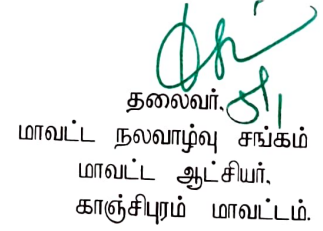 தலைவர்,
மாவட்ட நலவாழ்வு சங்கம்
மாவட்ட ஆட்சியர்,
காஞ்சிபுரம் மாவட்டம்.